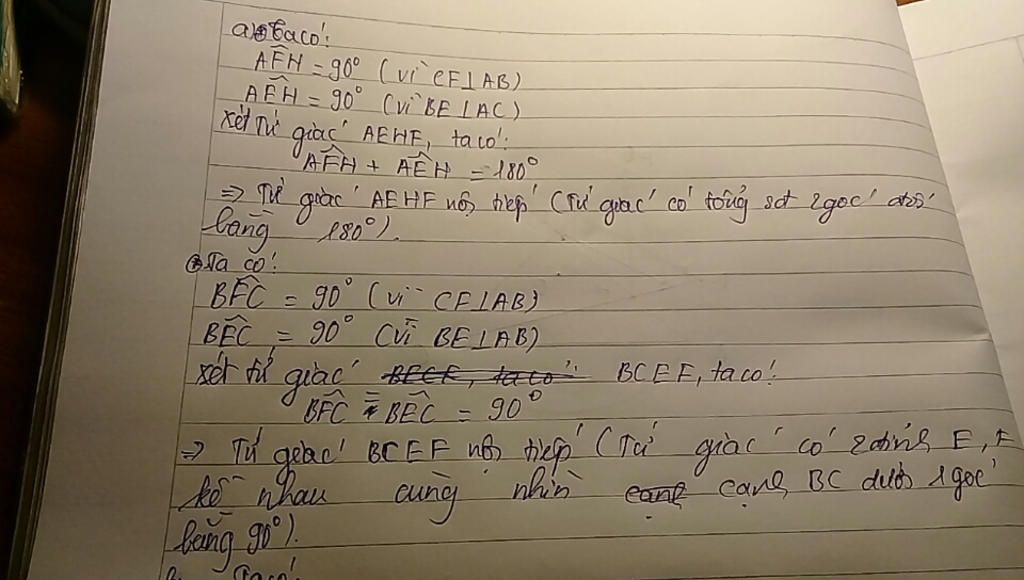 a) Ta có:
AFH = 90° (vì CF⊥AB)
AEH = 90° (vì BE⊥AC)
Xét tứ giác AEHF, ta có:
AFH + AEH = 180°
⇒ Tứ giác AEHF nội tiếp (Tứ giác có tổng sđ 2 góc đối
bằng 180°).
Ta có:
BFC = 90° (vì CF⊥AB)
BEC = 90° (vì BE⊥AB)
Xét tứ giác BCEF, ta có:
BFC = BEC = 90°
⇒ Tứ giác BCEF nội tiếp (Tứ giác có 2 đỉnh E, F
kề nhau cùng nhìn cạnh BC dưới 1 góc
bằng 90°).
Ta có: